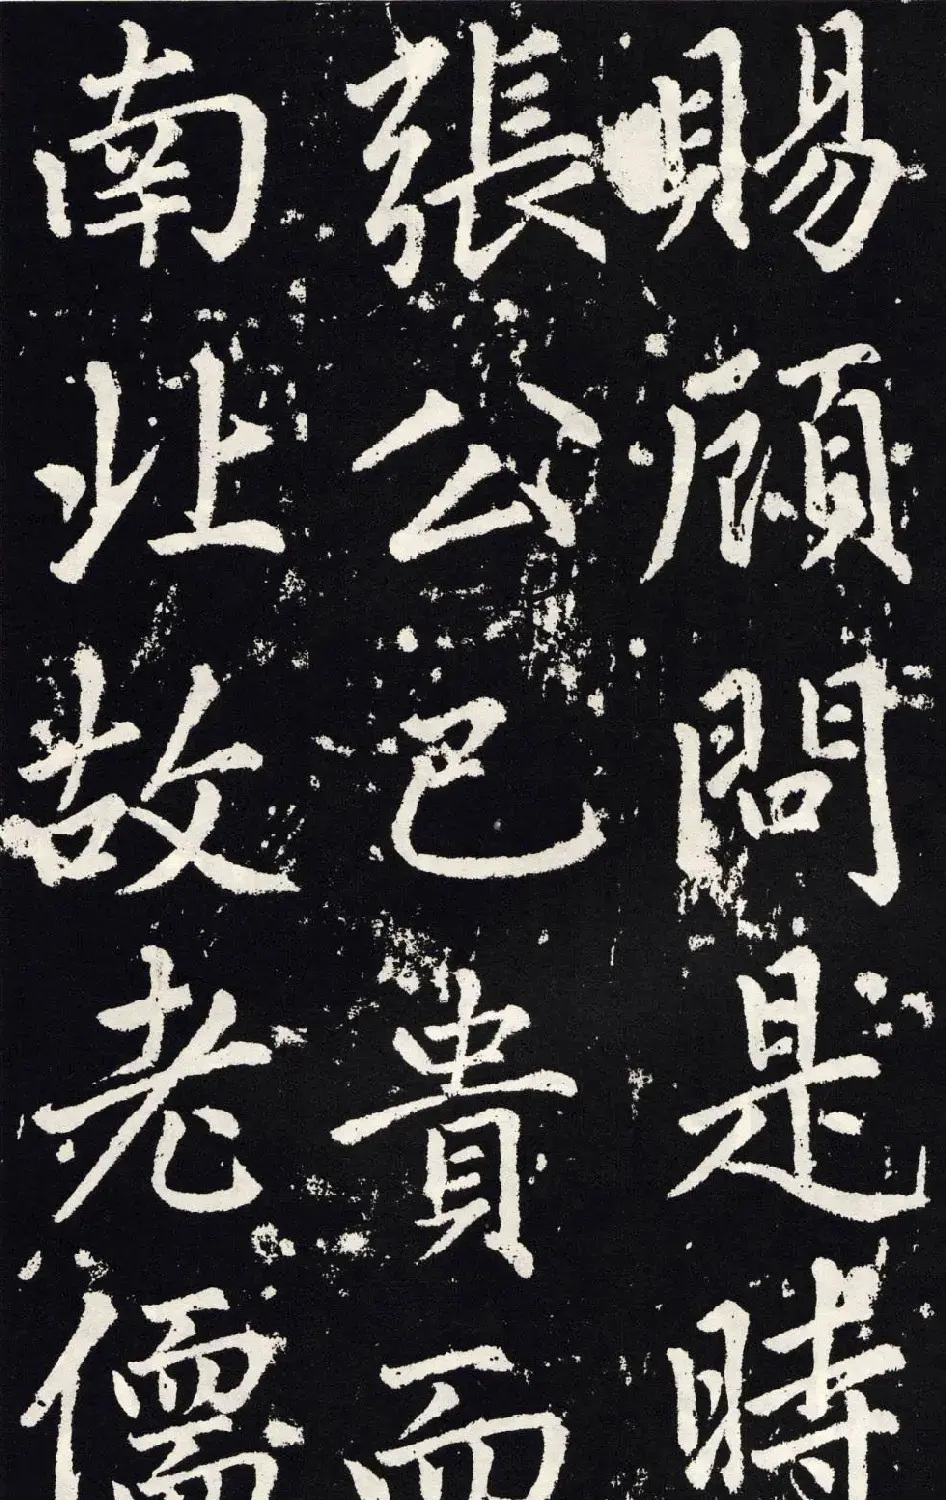 賜顧問是時
張公已貴而
南北故老儒